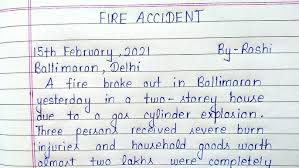 FIRE ACCIDENT
15th February, 2021 By-Rashi
Ballimaran, Delhi
A fire broke out in Ballimaran
yesterday in a two-storey house
due to a gas cylinder explosion.
Three persons received severe burn
injuries and household goods worth
almost two lakhs were completely